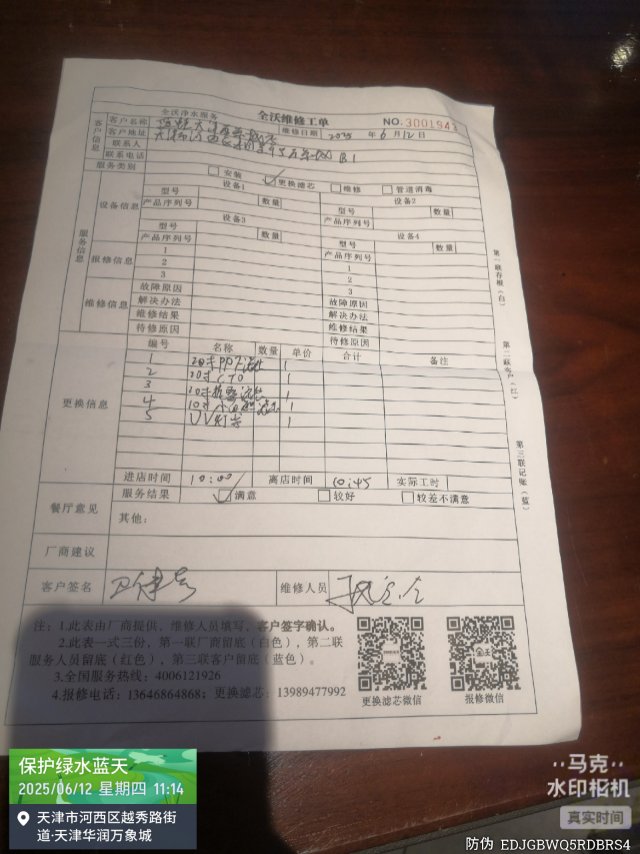 全沃净水服务 全沃维修工单 NO.3001943
客户信息
客户名称 维修日期 2025 年 6 月 12 日
客户地址 B1
联系人
联系电话
服务类别 安装 更换滤芯 维修 管道消毒
服务信息
设备信息
设备1 设备2
型号 型号
产品序列号 数量 产品序列号 数量
设备3 设备4
型号 型号
产品序列号 数量 产品序列号 数量
报修信息
1 1
2 2
3 3
维修信息
故障原因 故障原因
解决办法 解决办法
维修结果 维修结果
待修原因 待修原因
更换信息
编号 名称 数量 单价 合计 备注
1 20寸PP 1
2 10寸CTO 1
3 10寸 1
4 10寸 1
5 UV灯 1
进店时间 10:00 离店时间 10:45 实际工时
餐厅意见
服务结果 满意 较好 较差不满意
其他：
厂商建议
客户签名 维修人员
注：1.此表由厂商提供，维修人员填写，客户签字确认。
2.此表一式三份，第一联厂商留底（白色），第二联
服务人员留底（红色），第三联客户留底（蓝色）。
3.全国服务热线：4006121926
4.报修电话：13646864868；更换滤芯：13989477992
更换滤芯微信 报修微信
第一联存根（白）
第二联客户（红）
第三联记账（蓝）
保护绿水蓝天
2025/06/12 星期四 11:14
天津市河西区越秀路街
道·天津华润万象城
马克
水印相机
真实时间
防伪 EDJGBWQ5RDBRS4